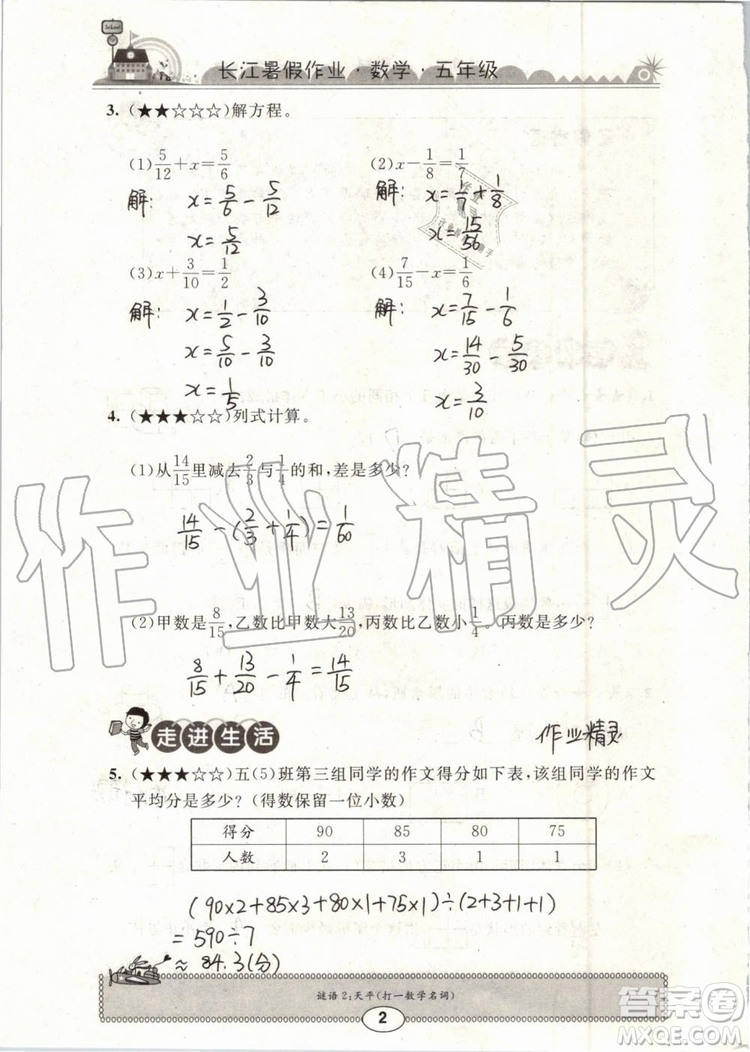 School
长江暑假作业·数学·五年级
3. (★★☆☆☆)解方程。
(1) 5/12 + x = 5/6 (2) x − 1/8 = 1/7
解: x = 5/6 − 5/12 解: x = 1/7 + 1/8
x = 5/12 x = 15/56
(3) x + 3/10 = 1/2 (4) 7/15 − x = 1/6
解: x = 1/2 − 3/10 解: x = 7/15 − 1/6
x = 5/10 − 3/10 x = 14/30 − 5/30
x = 1/5 x = 3/10
4. (★★★☆☆)列式计算。
(1)从14/15里减去2/3与1/4的和,差是多少?
14/15 − (2/3 + 1/4) = 1/60
(2)甲数是8/15,乙数比甲数大13/20,丙数比乙数小1/4,丙数是多少?
8/15 + 13/20 − 1/4 = 14/15
走进生活
作业精灵
5. (★★★☆☆)五(5)班第三组同学的作文得分如下表,该组同学的作文
平均分是多少?(得数保留一位小数)
得分 90 85 80 75
人数 2 3 1 1
(90×2+85×3+80×1+75×1)÷(2+3+1+1)
=590÷7
≈84.3(分)
谜语2:天平(打一数学名词)
2
作业精灵
答案圈
MXQE.COM